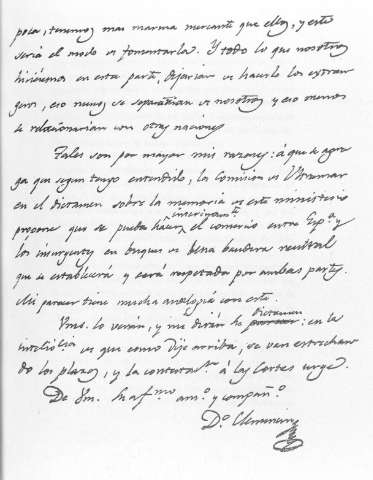 poca, tenemos mas marina mercante que ellos, y este
seria el modo de fomentarla. Y todo lo que nosotros
hiciesemos en esta parte, dejarian de hacerlo los extran
geros, eso menos se separarian de nosotros y eso menos
se relacionarian con otras naciones
Tales son por mayor mis razones: á que se agre
ga que segun tengo entendido, la Comision de Ultramar
en el dictamen sobre la memoria de este ministerio
propone que se pueda hacer interinamte el comercio entre Espa y
los insurgentes en buques de bandera neutral
que se establecerá y será respetada por ambas partes.
Mi parecer tiene mucha analogia con esto.
Vms. lo verán, y me dirán su parecer dictamen: en la
inteligcia de que como dije arriba, se van estrechan
do los plazos, y la contestaon á las Cortes urge.
De Vm. su afmo amo y compañº
Dº Clemencin